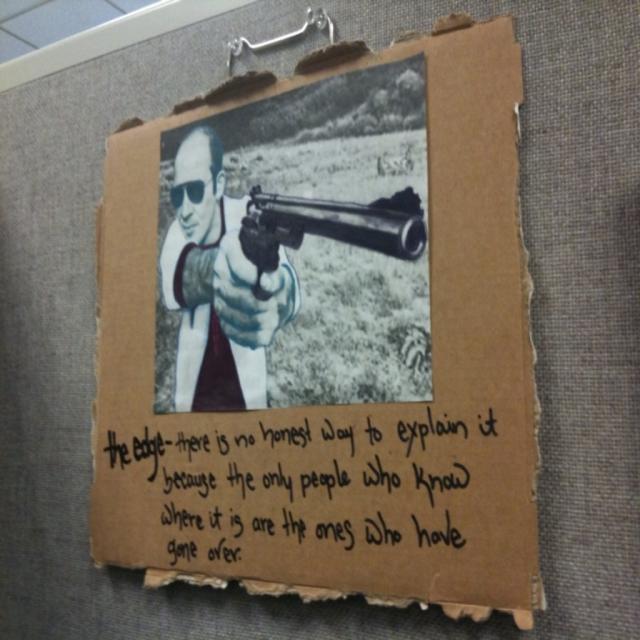 the edge- there is no honest way to explain it
because the only people who know
where it is are the ones who have
gone over.